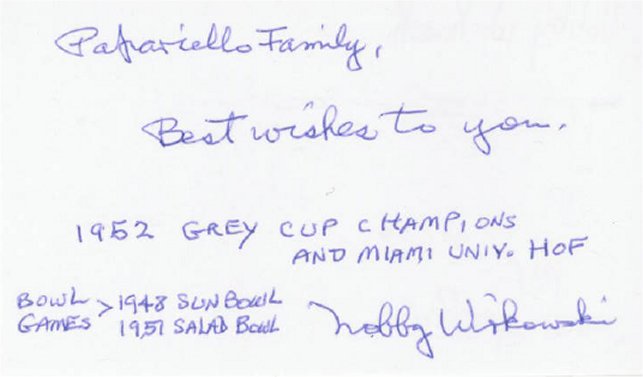 Papariello Family,
Best wishes to you.
1952 GREY CUP CHAMPIONS
AND MIAMI UNIV. HOF
BOWL GAMES > 1948 SUN BOWL
1951 SALAD BOWL
Nobby Wirkowski